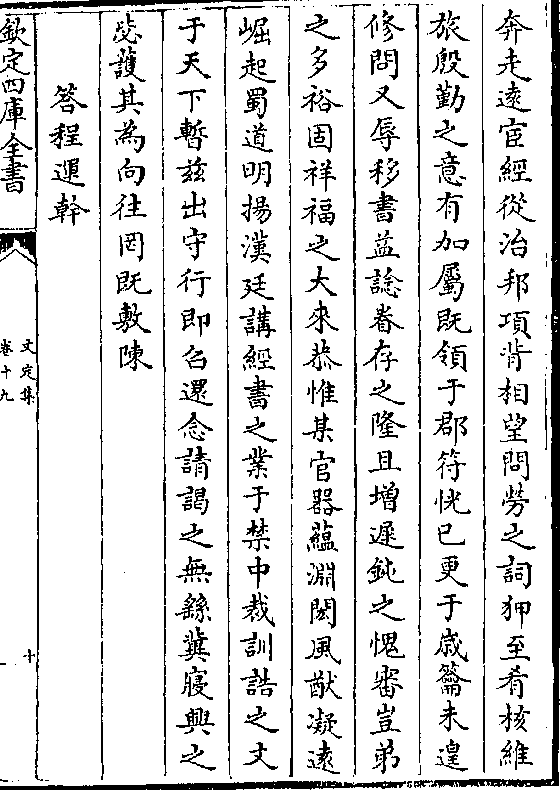 奔走遠宦經從治邦項背相望問勞之詞狎至肴核維
旅殷勤之意有加屬既領于郡符恍已更于歲籥未遑
修問又辱移書益諗眷存之隆且增遲鈍之愧審豈弟
之多裕固祥福之大來恭惟某官器蘊淵閎風猷凝遠
崛起蜀道明揚漢廷講經書之業于禁中裁訓誥之文
于天下暫兹出守行即召還念請謁之無繇冀寢興之
毖護其為向往罔既敷陳
答程運幹
欽定四庫全書
文定集
卷十九
十